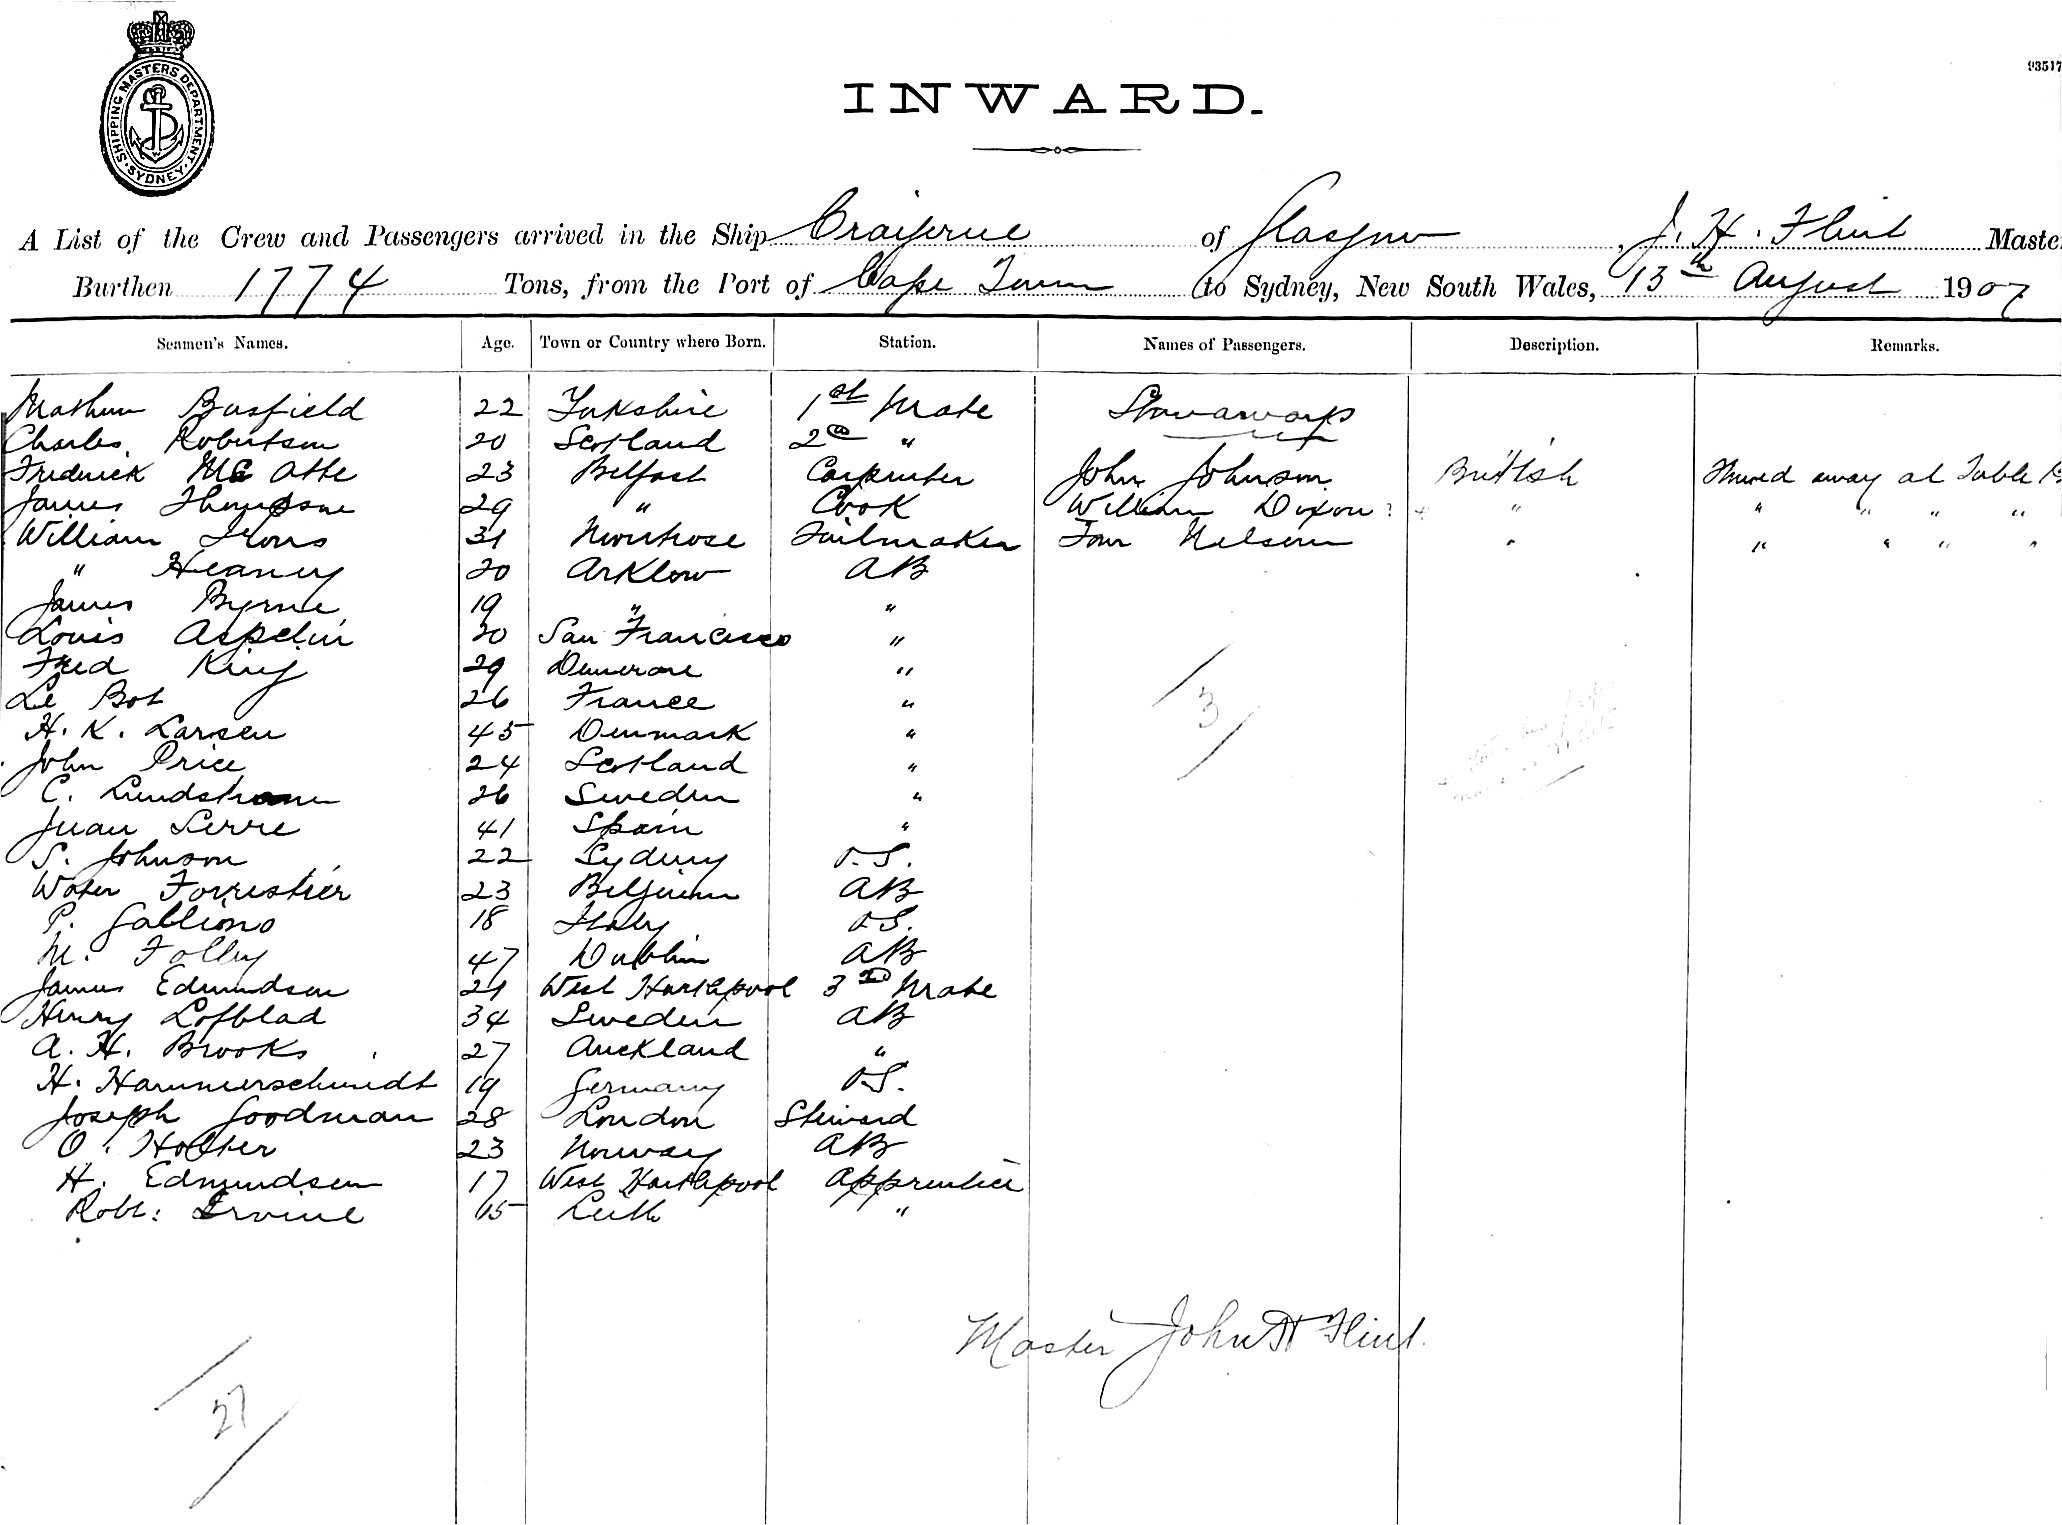 SHIPPING MASTERS DEPARTMENT · SYDNEY ·
93517
INWARD.
A List of the Crew and Passengers arrived in the Ship Craigerne of Glasgow, J. H. Flint Master
Burthen 1774 Tons, from the Port of Cape Town to Sydney, New South Wales, 13th August 1907
Seamen's Names. Age. Town or Country where Born. Station. Names of Passengers. Description. Remarks.
Busfield 22 Yorkshire 1st Mate Stowaways
Charles Robertson 20 Scotland 2nd "
Frederick 23 Belfast Carpenter John Johnson British away at Table
James Thompson 29 " Cook William Dixon " " " " "
William Irons 31 Montrose Sailmaker Nelson " " " " "
" Heaney 20 Arklow AB
James Byrne 19 " "
Louis Aspelin 20 San Francisco "
Fred King 29 "
Le Bot 26 France "
H. K. Larsen 45 Denmark "
John Price 24 Scotland "
C. Lundstrom 26 Sweden "
Juan Serre 41 Spain "
S. Johnson 22 Sydney O.S.
Forrestier 23 Belgium AB
P. Gallions 18 Italy O.S.
M. Folley 47 Dublin AB
James Edmundson 21 West Hartlepool 3rd Mate
Henry Lofblad 34 Sweden AB
A. H. Brooks 27 Auckland "
H. Hammerschmidt 19 Germany O.S.
Joseph Goodman 28 London Steward
O. Holter 23 Norway AB
H. Edmundson 17 West Hartlepool Apprentice
Robt: Irvine 15 Leith "
3
Master John H Flint.
27